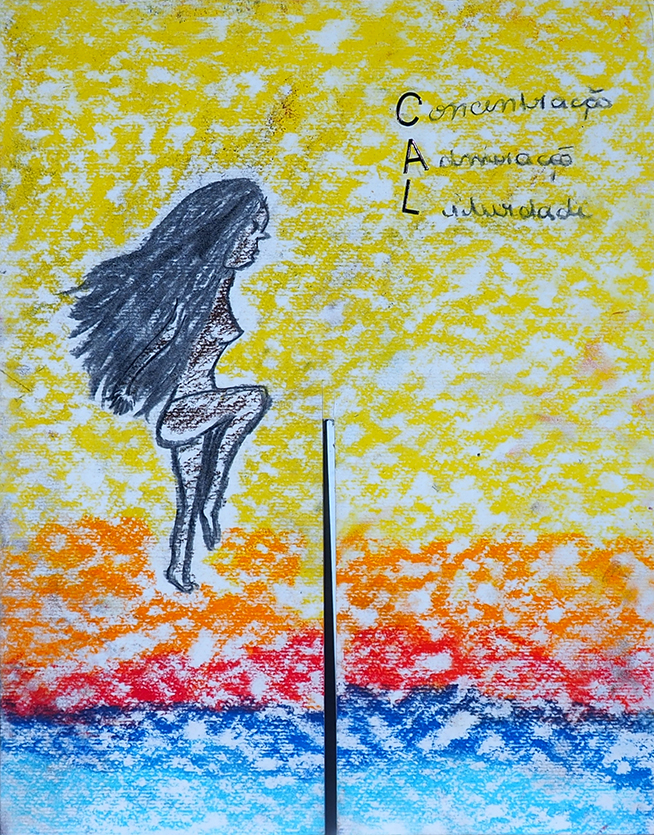 Concentração
Admiração
Liberdade